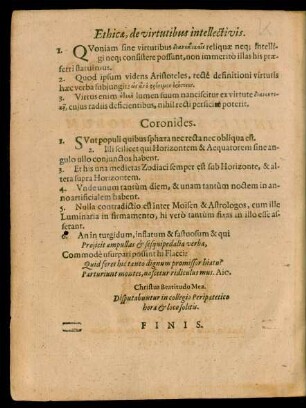 Ethicæ, de virtutibus intellectivis.
1. QVoniam sine virtutibus διανοητικαῖς reliquæ neq; intelligi
neq; consistere possunt, non immeritò illas his præ-
ferri statuimus.
2. Quod ipsum videns Aristoteles, rectè definitioni virtutis
hæc verba subjungit:
3. Virtus enim lumen suum nanciscitur ex virtute
cujus radiis deficientibus, nihil recti perficere poterit.
Coronides.
1. SVnt populi quibus sphæra nec recta nec obliqua est.
2. Illi scilicet qui Horizontem & Aequatorem sine an-
gulo ullo conjunctos habent.
3. Et his una medietas Zodiaci semper est sub Horizonte, & al-
tera supra Horizontem.
4. Vnde unum tantùm diem, & unam tantùm noctem in an-
no artificialem habent.
5. Nulla contradictio est inter Moisen & Astrologos, cum ille
Luminaria in firmamento, hi verò tantùm fixas in illo esse af-
serant.
6. An in turgidum, inflatum & fastuosum & qui
Projicit ampullas & sesquipedalia verba,
Commodè usurpari possint hi Flacci:
Quid feret hic tanto dignum promissor hiatu?
Parturiunt montes, nascetur ridiculus mus. Aio.
Christus Beatitudo Mea.
Disputabuntur in collegio Peripatetico
hora & loco solitis.
FINIS.